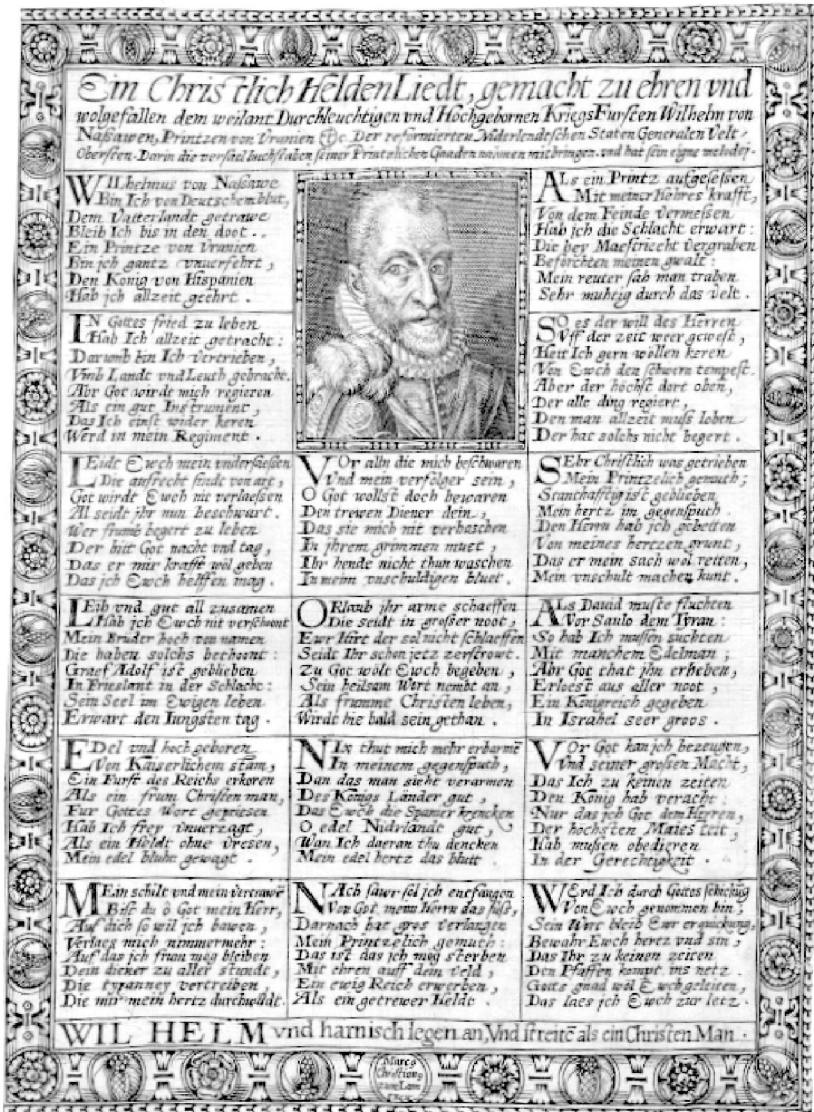 Ein Christlich Helden Liedt, gemacht zu ehren vnd
wolgefallen dem weilant Durchleuchtigen vnd Hochgebornen KriegsFursten Wilhelm von
Naßawen, Printzen von Vranien etc. Der reformierten Niderlendeschen Staten Generalen Velt-
Obersten. Darin die versael buchstaben seiner Printzlichen Gnaden naümen mitbringen. vnd hat sein eigne melodey.
WILhelmus von Naßawe
Bin Ich von Deutschem blut,
Dem Vatterlandt getrawe
Bleib Ich bis in den doot..
Ein Printze von Vranien
Bin jch gantz vnuerfehrt,
Den König von Hispanien
Hab jch allzeit geehrt.
IN Gottes fried zu leben
Hab Ich allzeit getracht:
Darumb bin Ich vertrieben,
Vmb Landt vnd Leuth gebracht.
Abr Got wirdt mich regieren
Als ein gut Instrument,
Das Ich einst wider keren
Werd in mein Regiment.
LEidt Ewch mein vndersaessen
Die aufrecht sindt von art,
Got wirdt Ewch nit verlaessen
Al seidt jhr nun beschwart.
Wer frumb begert zu leben
Der bitt Got nacht vnd tag,
Das er mir krafft wöl geben
Das jch Ewch helffen mag.
LEib vnd gut all zusamen
Hab jch Ewch nit verschoont
Mein Bruder hoch von namen
Die haben solchs bethoont:
Graef Adolf ist geblieben
In Frieslant in der Schlacht:
Sein Seel im Ewigen leben
Erwart den Iungsten tag.
EDel vnd hoch geboren
Von Kaiserlichem stam,
Ein Furst des Reichs erkoren
Als ein frum Christen man,
Fur Gottes Wort gepriesen
Hab Ich frey vnuerzagt,
Als ein Heldt ohne Vresen,
Mein edel bluht gewagt.
MEin schilt vnd mein vertrawē
Bist du ô Got mein Herr,
Auf dich so wil jch bawen,
Verlaes mich nimmermehr:
Auf das jch frum mag bleiben
Dein diener zu aller stundt,
Die tyranney vertreiben,
Die mir mein hertz durchwūdt.
VOr alln die mich beschwaren
Vnd mein verfolger sein,
O Got wollst doch bewaren
Den trewen Diener dein,
Das sie mich nit verhaschen
In jhrem grimmen muet,
Ihr hende nicht thun waschen
In meim vnschuldigen bluet.
ORlaub jhr arme schaeffen
Die seidt in großer noot,
Ewr Hirt der sol nicht schlaeffen
Seidt Ihr schon jetz zerstrowt.
Zu Got wölt Ewch begeben,
Sein heilsam Wort nembt an,
Als frumme Christen leben,
Wirdt hie bald sein gethan.
NIx thut mich mehr erbarmē
In meinem gegenspuch,
Dan das man sieht verarmen
Des Königs Länder gut,
Das Ewch die Spanier krencken
O edel Nidrlandt gut,
Wan Ich daeran thu dencken
Mein edel hertz das blutt.
NAch sawr sol jch entfangen
Von Got meim Herrn das sußt,
Darnach hat gros verlangen
Mein Printzelich gemuth:
Das ist das jch mog sterben
Mit ehren auff dem veld,
Ein ewig Reich erwerben,
Als ein getrewer Heldt.
ALs ein Printz aufgesessen
Mit meiner Hehres krafft,
Von dem Feinde vermessen
Hab jch die Schlacht erwart:
Die bey Maestriecht vergraben
Beforchten meinen gwalt:
Mein reuter sah man traben
Sehr muhtig durch das Velt.
SO es der will des Herren
Vff der zeit weer gewest,
Hett Ich gern wöllen keren
Von Ewch den schwern tempest.
Aber der höchst dort oben,
Der alle ding regiert,
Den man allzeit muß loben
Der hat solchs nicht begert.
SEhr Christlich was getrieben
Mein Printzelich gemuth;
Stanthafftig ist geblieben
Mein hertz im gegenspuch.
Den Herrn hab jch gebetten
Von meines hertzen grunt,
Das er mein sach wöl retten,
Mein vnschult machen kunt.
ALs Dauid muste fluchten
Vor Saulo dem Tyran:
So hab Ich mussen suchten
Mit manchem Edelman;
Abr Got that jhn erheben,
Erloest aus aller noot,
Ein Königreich gegeben
In Israhel seer groos.
VOr Got kan jch bezeugen,
Vnd seiner großen Macht,
Das Ich zu keinen zeiten
Den König hab veracht:
Nur das jch Got dem Herren,
Der hochsten Maiesteit,
Hab mußen obedieren
In der Gerechtigkeit.
WErd Ich durch Gottes schickūg
Von Ewch genommen hin,
Sein Wort bleib Ewr erquickung,
Bewahr Ewch hertz vnd sin,
Das Ihr zu keinen zeiten
Den Pfaffen kompt ins netz.
Gotts gnad wöl Ewch geleiten,
Das laes jch Ewch zur letz.
WIL HELM vnd harnisch legen an, Vnd streitē als ein Christen Man.